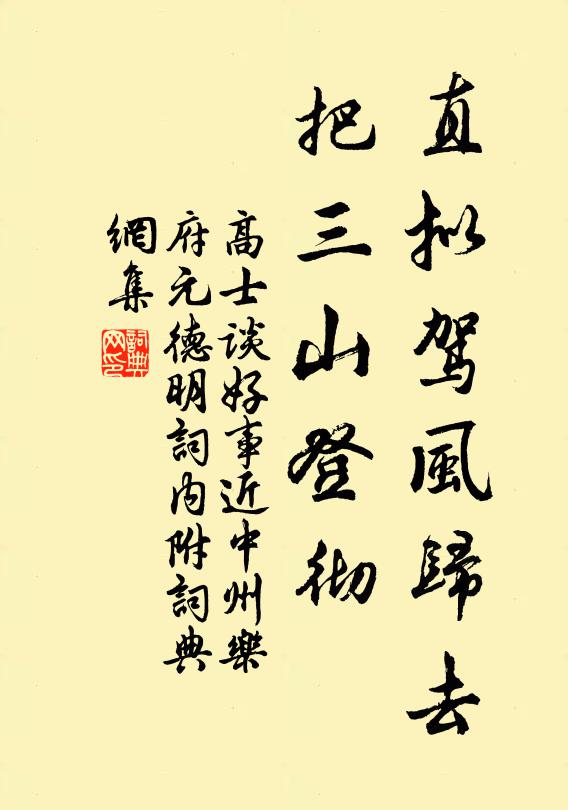 直拟駕風歸去
把三山登彻
高士谈好事近中州樂
府元德明詞内附詞典
網集
詞典网印